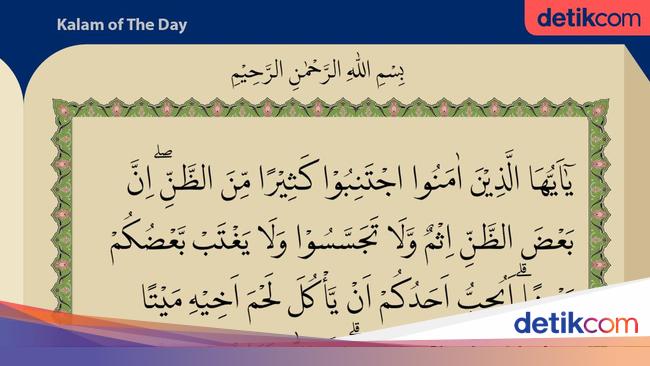 Kalam of The Day
detikcom
بِسْمِ اللهِ الرَّحْمٰنِ الرَّحِيْمِ
يٰٓاَيُّهَا الَّذِيْنَ اٰمَنُوا اجْتَنِبُوْا كَثِيْرًا مِّنَ الظَّنِّۖ اِنَّ
بَعْضَ الظَّنِّ اِثْمٌ وَّلَا تَجَسَّسُوْا وَلَا يَغْتَبْ بَّعْضُكُمْ
اَيُحِبُّ اَحَدُكُمْ اَنْ يَّأْكُلَ لَحْمَ اَخِيْهِ مَيْتًا
detikcom